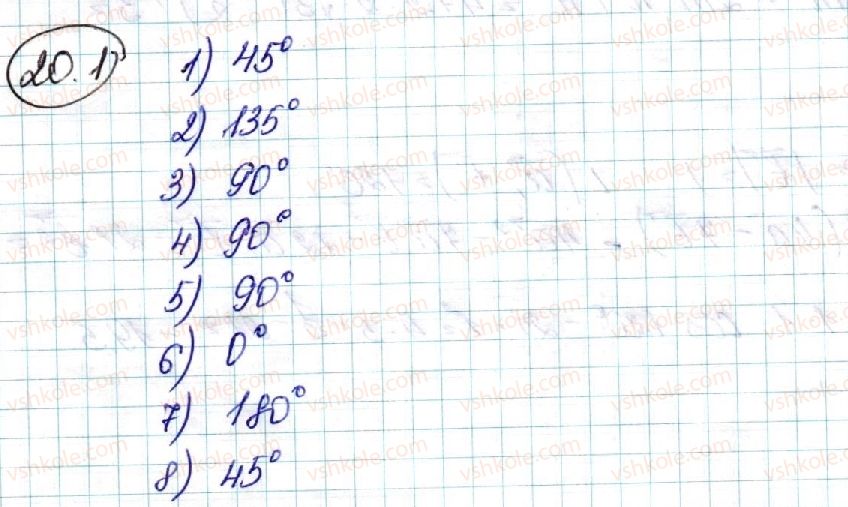 20.1
1) 45°
2) 135°
3) 90°
4) 90°
5) 90°
6) 0°
7) 180°
8) 45°
vshkole.com